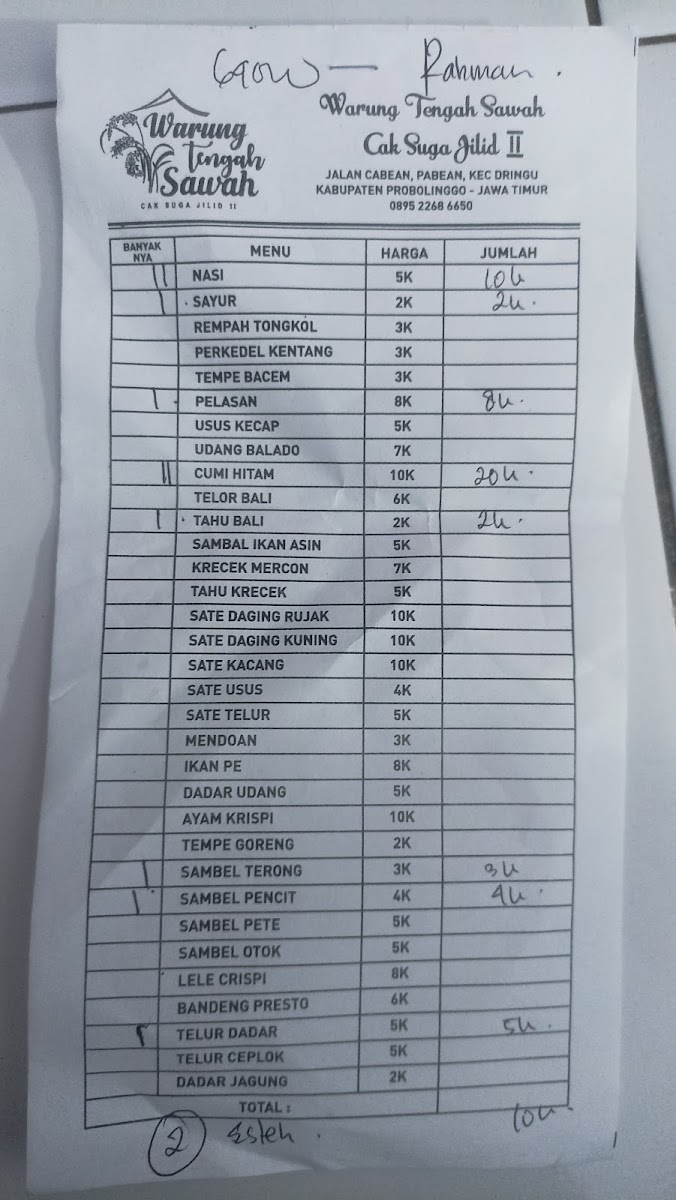 Rahman.
Warung
Tengah
Sawah
CAK SUGA JILID II
Warung Tengah Sawah
Cak Suga Jilid II
JALAN CABEAN, PABEAN, KEC DRINGU
KABUPATEN PROBOLINGGO - JAWA TIMUR
0895 2268 6650
BANYAK NYA MENU HARGA JUMLAH
|| NASI 5K 10k
| SAYUR 2K 2k.
REMPAH TONGKOL 3K
PERKEDEL KENTANG 3K
TEMPE BACEM 3K
| PELASAN 8K 8k.
USUS KECAP 5K
UDANG BALADO 7K
|| CUMI HITAM 10K 20k.
TELOR BALI 6K
| TAHU BALI 2K 2k.
SAMBAL IKAN ASIN 5K
KRECEK MERCON 7K
TAHU KRECEK 5K
SATE DAGING RUJAK 10K
SATE DAGING KUNING 10K
SATE KACANG 10K
SATE USUS 4K
SATE TELUR 5K
MENDOAN 3K
IKAN PE 8K
DADAR UDANG 5K
AYAM KRISPI 10K
TEMPE GORENG 2K
| SAMBEL TERONG 3K 3k
| SAMBEL PENCIT 4K 4k.
SAMBEL PETE 5K
SAMBEL OTOK 5K
LELE CRISPI 8K
BANDENG PRESTO 6K
| TELUR DADAR 5K 5k.
TELUR CEPLOK 5K
DADAR JAGUNG 2K
TOTAL :
2 Esteh. 10k.